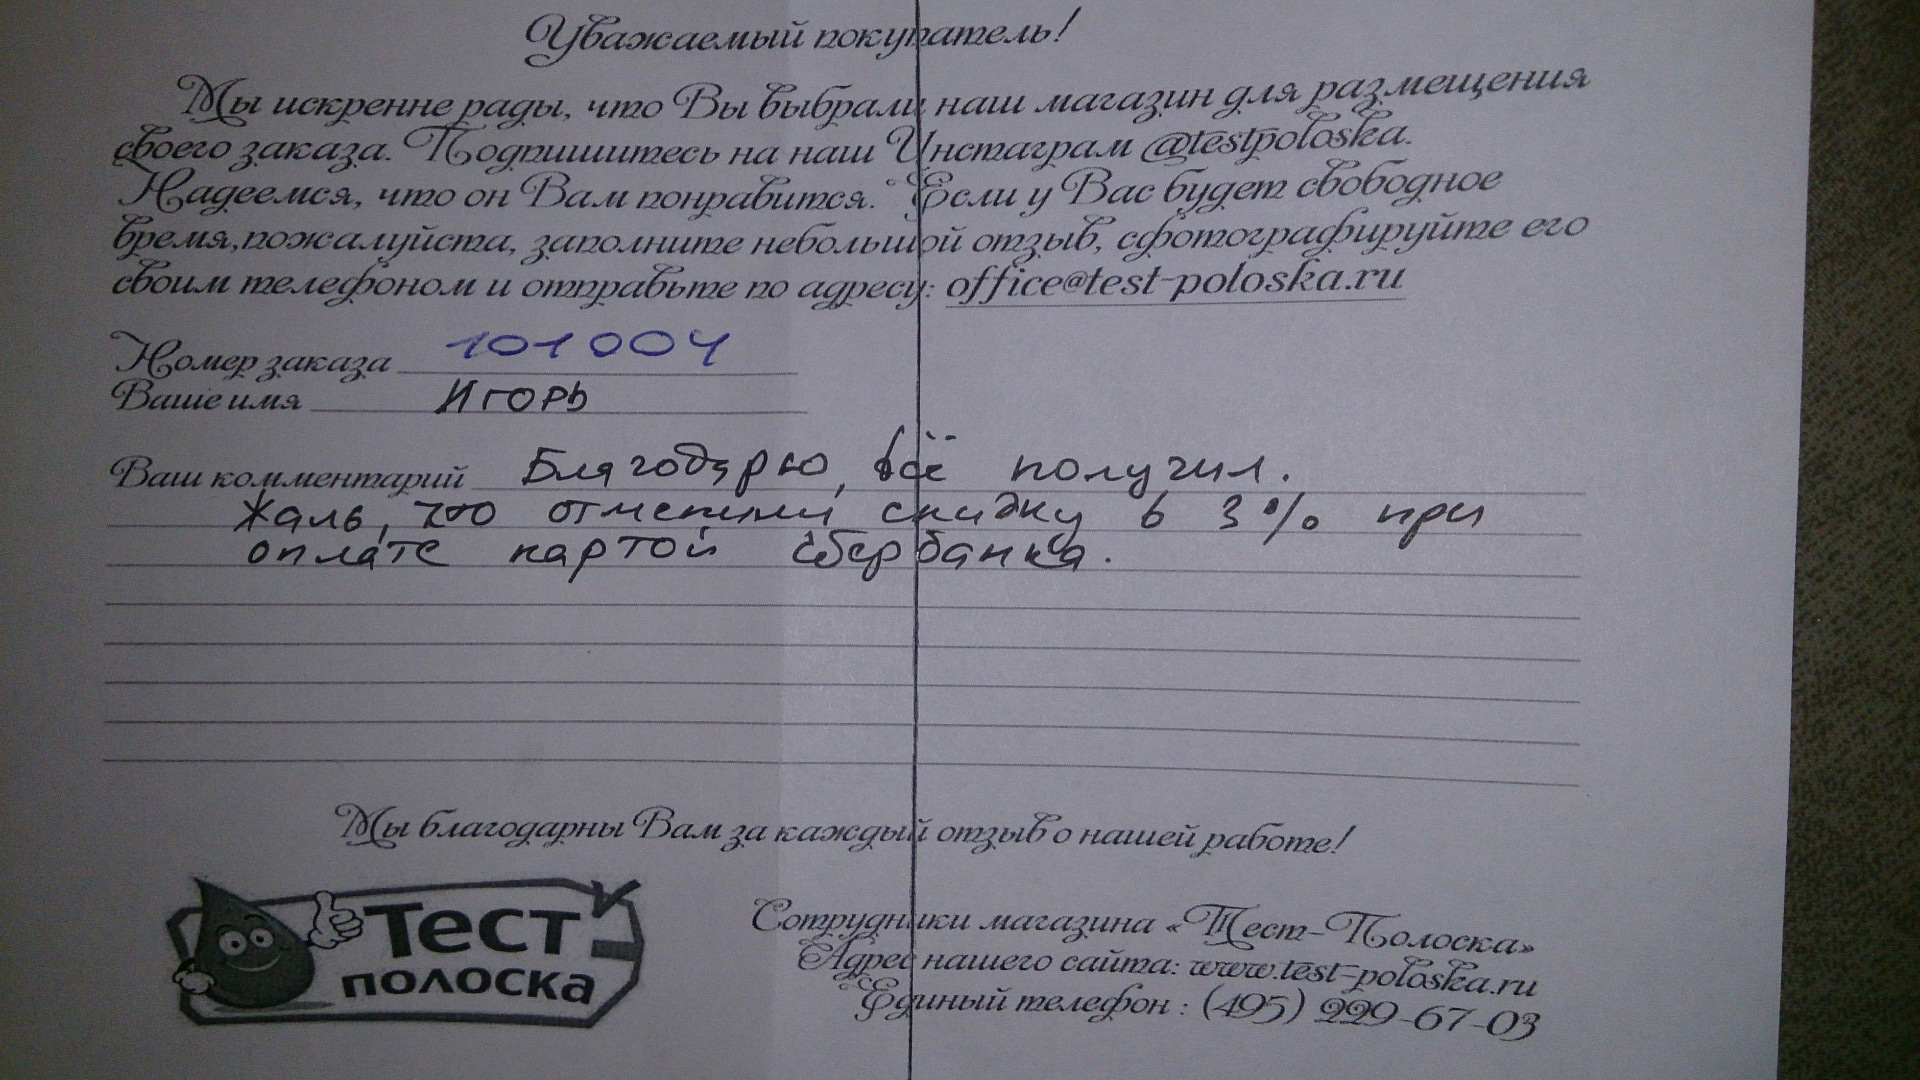 Уважаемый покупатель!
Мы искренне рады, что Вы выбрали наш магазин для размещения
своего заказа. Подпишитесь на наш Инстаграм @testpoloska.
Надеемся, что он Вам понравится. Если у Вас будет свободное
время,пожалуйста, заполните небольшой отзыв, сфотографируйте его
своим телефоном и отправьте по адресу: office@test-poloska.ru
Номер заказа 101004
Ваше имя Игорь
Ваш комментарий Благодарю, всё получил.
Жаль, что отменили скидку в 3% при
оплате картой сбербанка.
Мы благодарны Вам за каждый отзыв о нашей работе!
Тест
полоска
Сотрудники магазина «Тест-Полоска»
Адрес нашего сайта: www.test-poloska.ru
Единый телефон : (495) 229-67-03